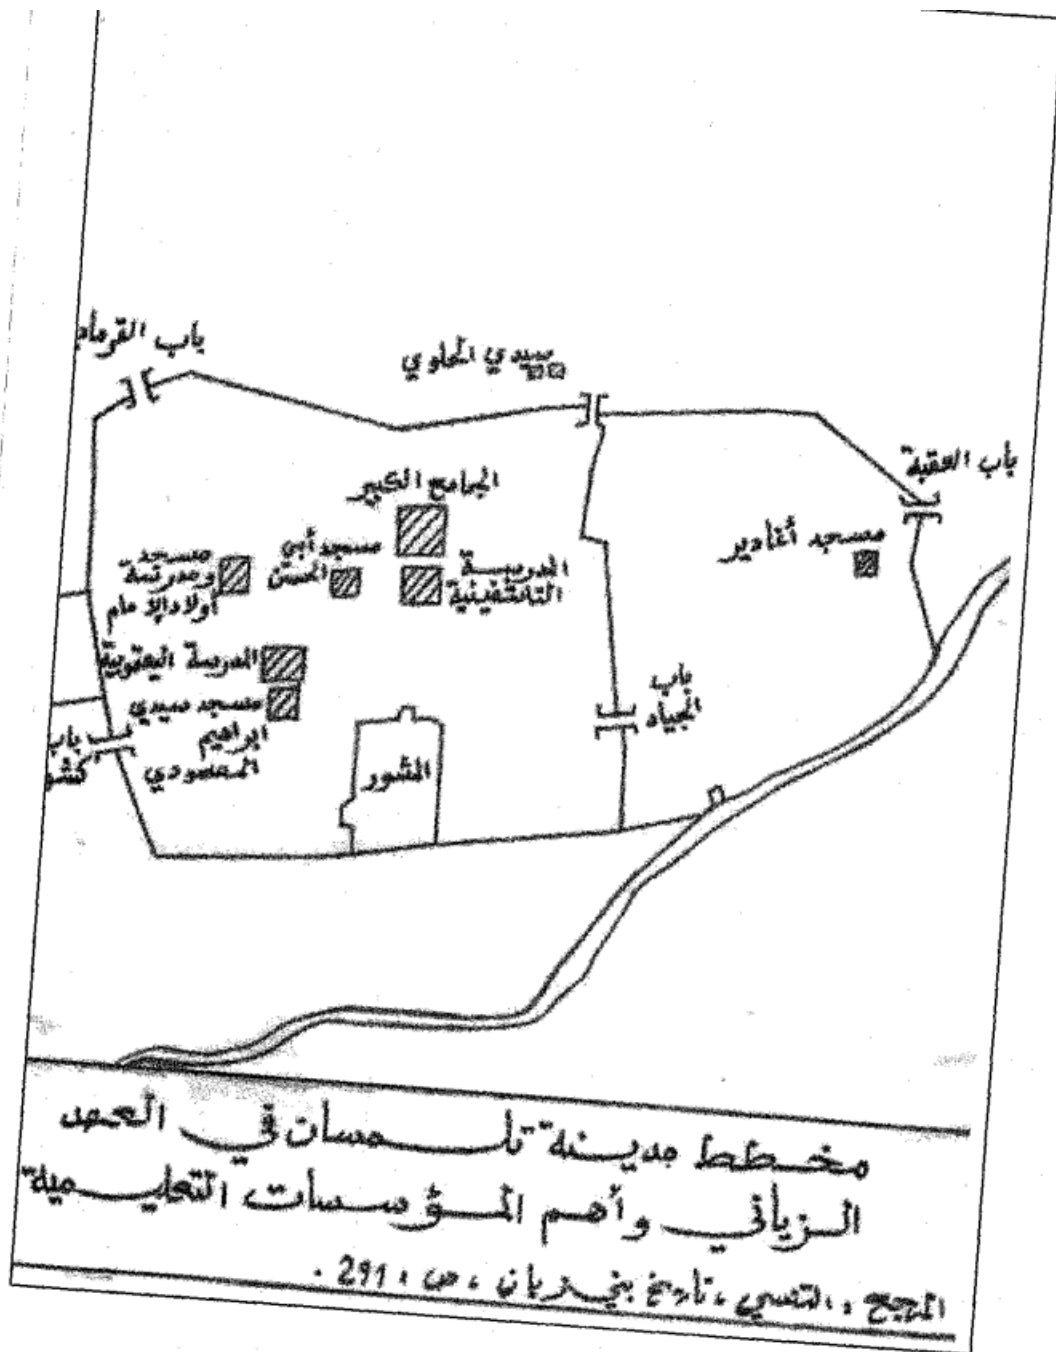 باب القرماد
سيدي الحلوي
باب العقبة
الجامع الكبير
مسجد أغادير
مسجد أبي
الحسن
المدرسة
التاشفينية
مسجد
ومدرسة
أولاد الإمام
المدرسة اليعقوبية
مسجد سيدي
ابراهيم
المصمودي
باب
كشو
المشور
باب
الجياد
مخطط مدينة تلمسان في العهد
الزياني وأهم المؤسسات التعليمية
المرجع : التنسي ، تاريخ بني زيان ، ص ، 291 .